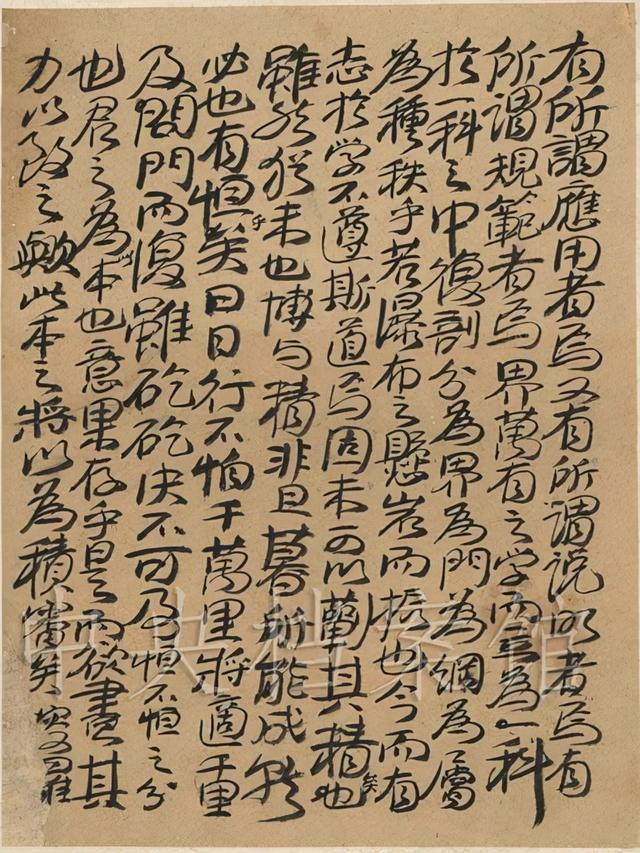 有所謂應用者焉又有所謂説明者焉有
所謂規範者焉界萬有之学而立為一科
於一科之中復剖分為界為門為綱為屬
為種秩乎若瀑布之懸岩而振也今而有
志於学不遵斯道焉固未可以蘄其精也矣
雖然猶未也博与精非旦暮所能成就
必也有恒矣乎曰日行不怕千萬里將適千里
及閭門而復雖矻矻決不可及恒不恒之分
也君之為此本也意果存乎是而欲盡其
力以致之歟此本之將以為積畜矣
中央档案馆